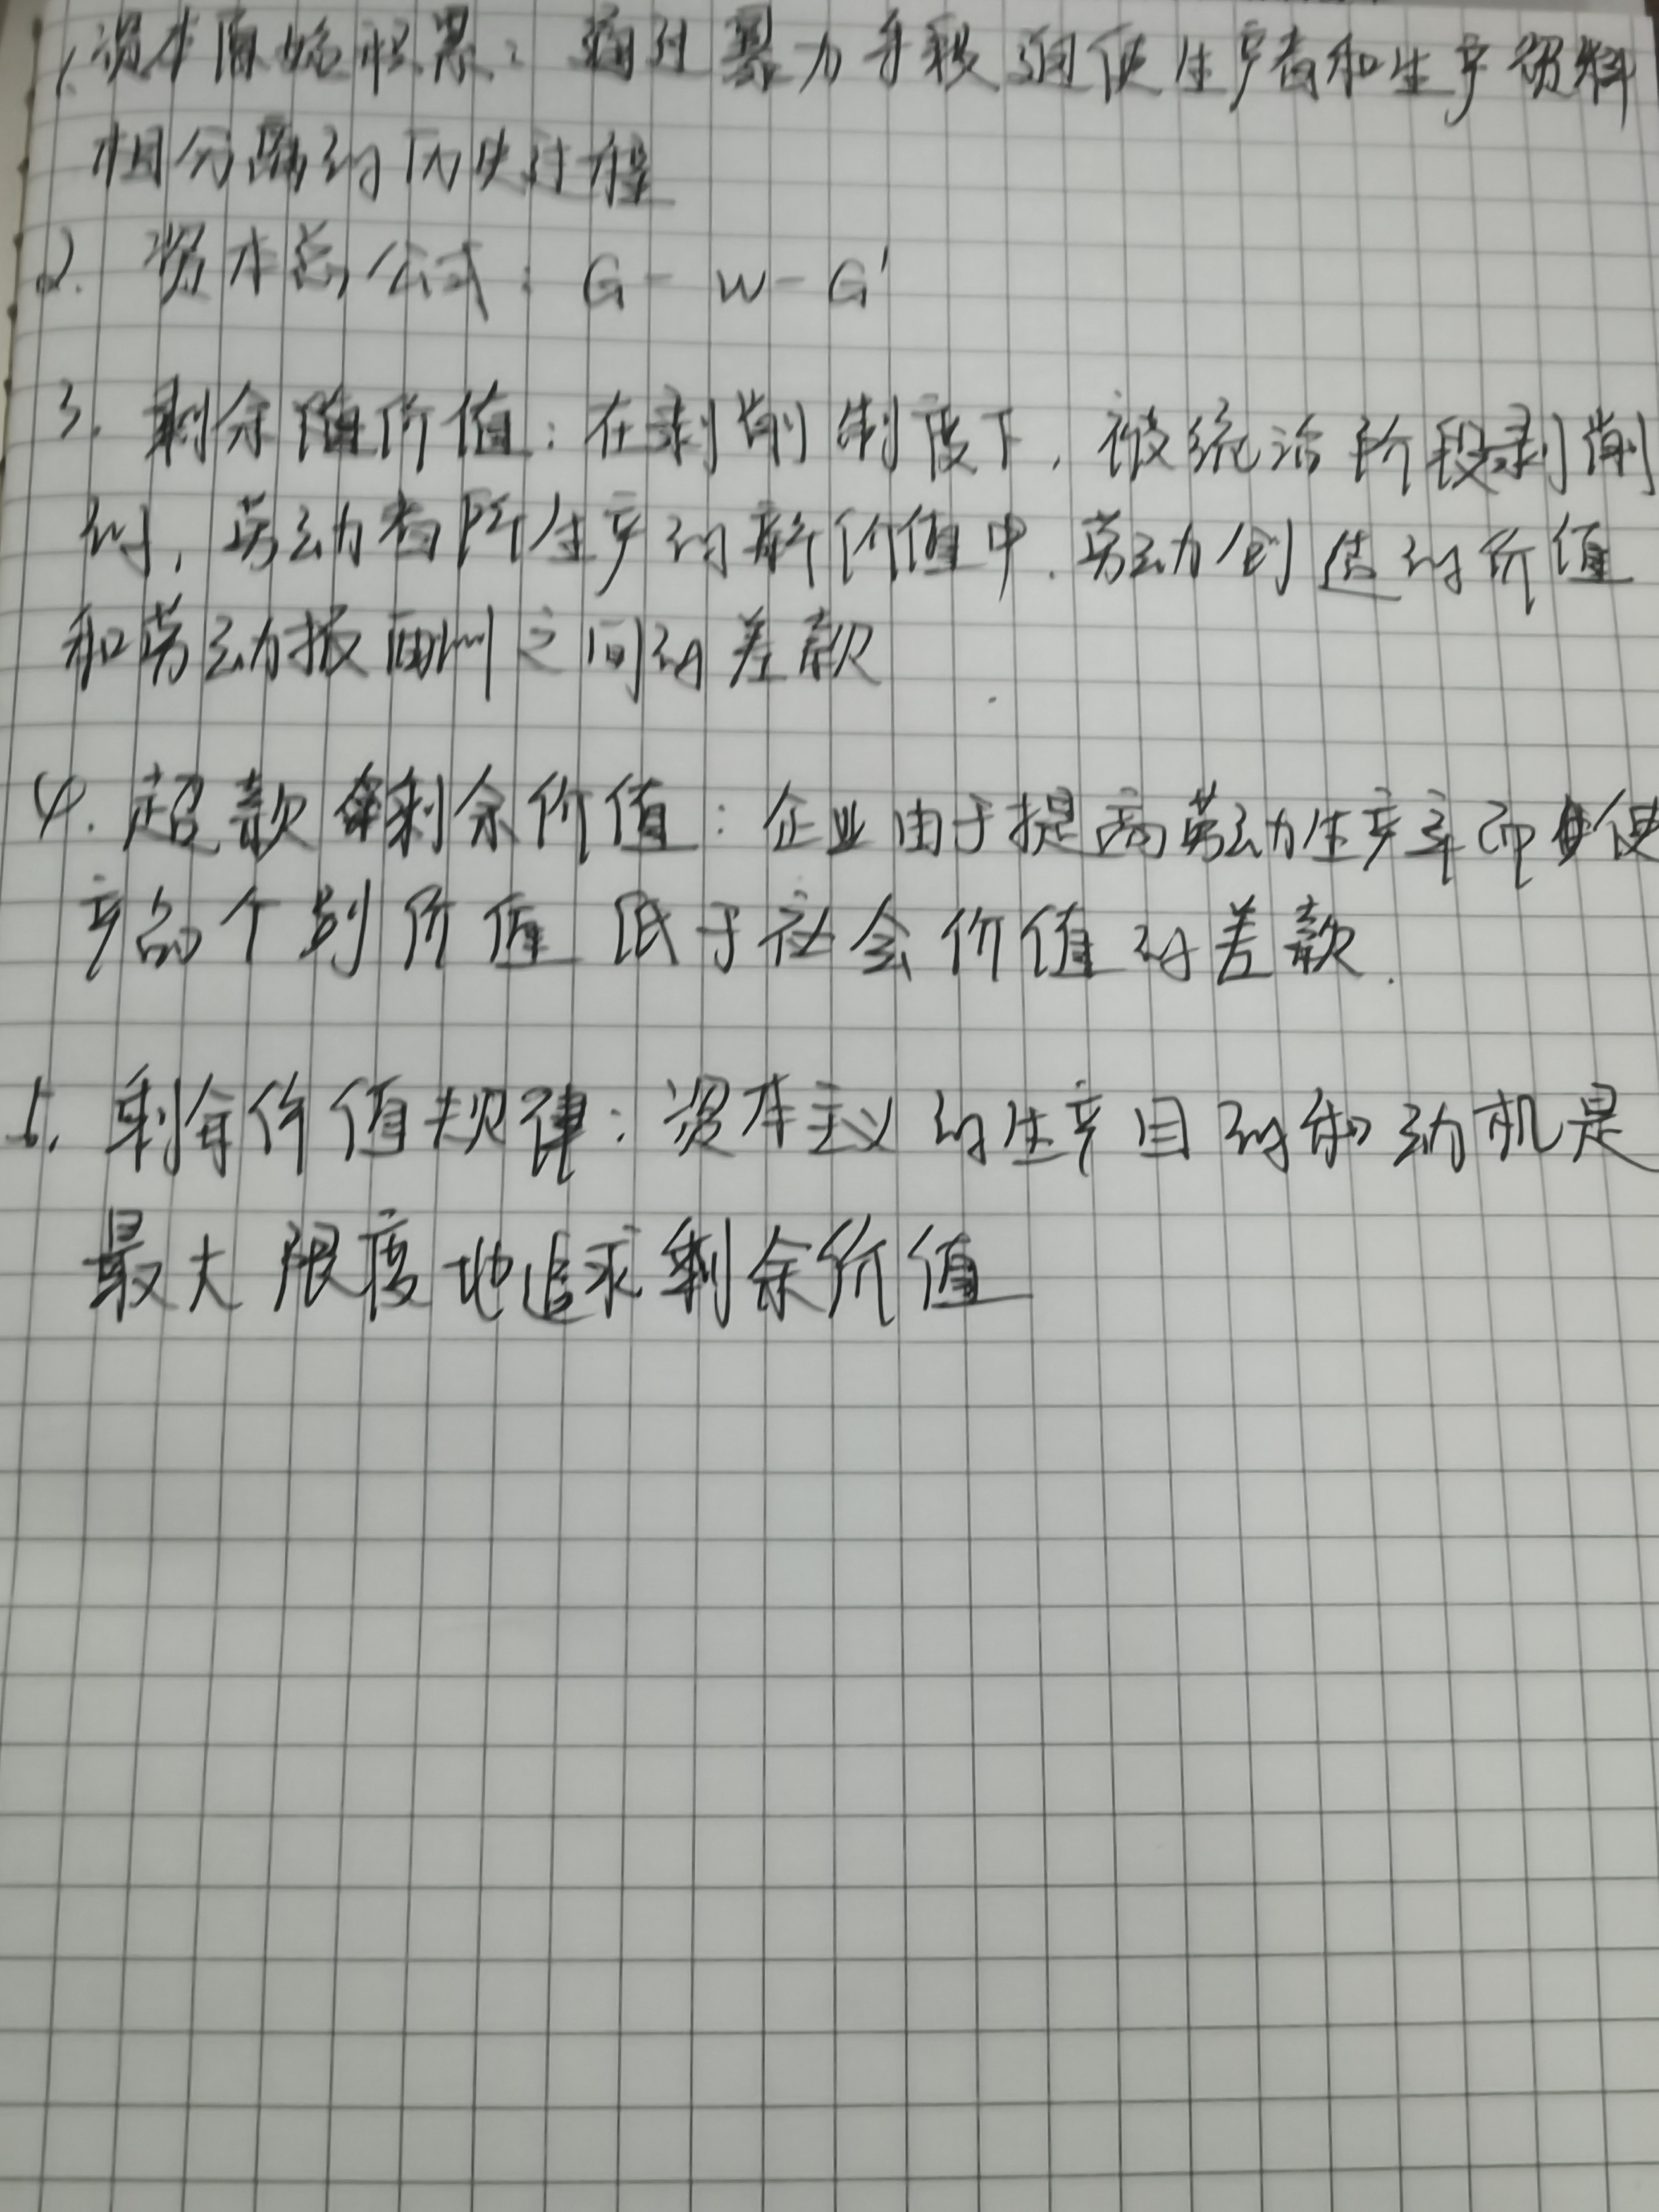 1. 资本原始积累：通过暴力手段迫使生产者和生产资料
相分离的历史过程
2. 资本总公式：G－W－G'
3. 剩余价值：在剥削制度下，被统治阶段剥削
的，劳动者所生产的新价值中，劳动创造的价值
和劳动报酬之间的差款
4. 超款剩余价值：企业由于提高劳动生产率而使
产品个别价值低于社会价值的差款.
5. 剩余价值规律：资本主义的生产目的和动机是
最大限度地追求剩余价值